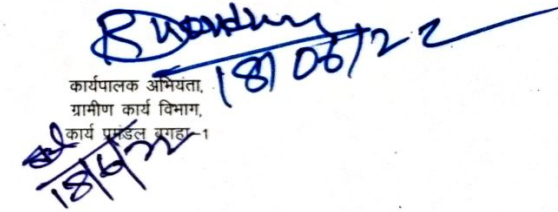 18/06/22
कार्यपालक अभियंता,
ग्रामीण कार्य विभाग,
कार्य प्रमंडल बगहा-1
18/6/22